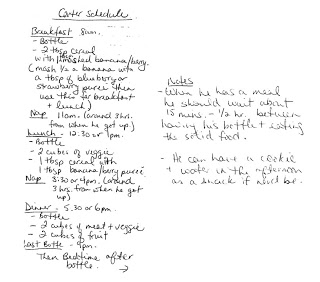 Carter Schedule
Breakfast 8am.
- Bottle
- 2 tbsp cereal
with mashed banana/berry.
(mash 1/2 a banana with
a tbsp of blueberry or
strawberry puree then
use this for breakfast
+ lunch)
Nap 11am. (around 3hrs.
from when he got up)
Lunch - 12:30 or 1pm.
- Bottle
- 2 cubes of veggie
- 1 tbsp cereal with
1 tbsp banana/berry puree
Nap 3:30 or 4pm. (around
3 hrs. from when he got
up)
Dinner - 5:30 or 6pm.
- Bottle
- 2 cubes of meat + veggie
- 2 cubes of fruit
Last Bottle - 9pm.
Then Bedtime after
bottle. →
Notes
- When he has a meal
he should wait about
15 mins. - 1/2 hr. between
having his bottle + eating
the solid food.
- He can have a cookie
+ water in the afternoon
as a snack if need be.